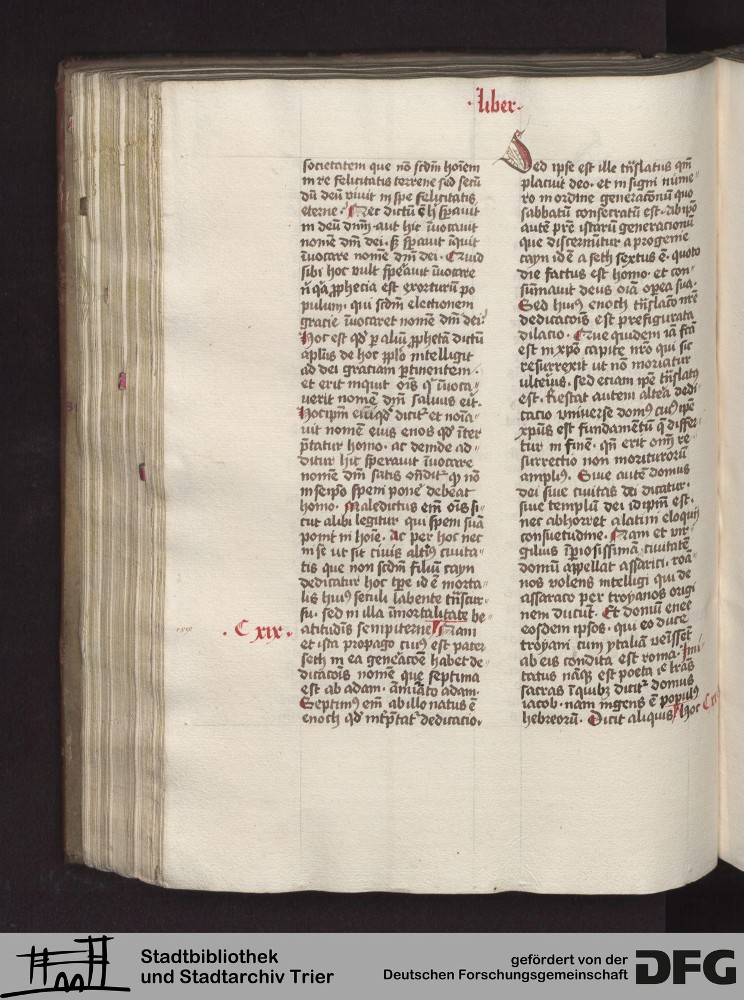 ·liber·
societatem que nō scdm hoīem
in re felicitatis terrene sed secū
dū deū viuit in spe felicitatis
eterne· Nec dictū ē h̄ sperauit
in deū dnm· aut hic īuocauit
nomē dnī dei· sʒ sperauit īquit
īuocare nomē dnī dei· Quid
sibi hoc vult sperauit īuocare
nꝫ qꝛ ꝓphecia est exorturū po
pulum· qui scdm electionem
gracie īuocaret nomē dnī dei·
Hoc est qd ꝑ aliū ꝓphetā dictū
aplus de hoc pplo intelligit
ad dei graciam ꝑtinentem·
et erit inquit oīs qͥ īuoca
uerit nomē dnī saluus erit·
Hocipm enī qd dicit et noīa
uit nomē eius enos qd īter
ꝑtatur homo· ac deinde ad
ditur hic sperauit īuocare
nomē dnī satis ondit qꝫ nō
in seipso spem ponē debeat
homo· Maledictus em oīs si
cut alibi legitur qui spem suā
ponit in hoīe· Ac per hoc nec
in se ut sit ciuis altīꝰ ciuita
tis que non scdm filiū cayn
dedicatur hoc tpe id ē morta
lis huiꝰ seculi labente tnscur
su· sed in illa īmortalitate be
·C xix· atitudīs sempiterne Nam
et ista propago cuiꝰ est pater
seth in ea generacōe habet de
dicacōis nomē que septima
est ab adam· ānūīato adam·
Septimꝰ em ab illo natus ē
enoch qd intꝑtat dedicatio·
Sed ipse est ille tnslatus qm
placuit deo· et in signi nume
ro in ordine generacōnū quo
sabbatū consecratū est· ab ipo
autē pre istarū generacionū
que discernūtur a progenie
cayn id ē a seth sextus ē· quoto
die factus est homo· et con
sūmauit deus oīa opera sua·
Sed huiꝰ enoch tnslaco nre
dedicacōis est prefigurata
dilacio· Que quidem iā fca
est in xpo capite nro qui sic
resurrexit ut nō moriatur
ulterius· sed eciam ipe tnslatꝰ
est· Restat autem altera dedi
tacio vniuerse domꝰ cuiꝰ ipe
xpus est fundamentū q differ
tur in finē· qn erit omī re
surrectio non moriturorū
ampliꝰ· Siue autē domus
dei siue ciuitas dei dicatur·
siue templū dei idipm est·
nec abhorret a latini eloquij
consuetudine· Nam et vir
gilius īpiosissimā ciuitatē
domū appellat assarici· roā
nos volens intelligi qui de
assaraco per troyanos origi
nem ducūt· Et domū enee
eosdem ipsos· qui eo duce
troyani cum ytaliā venīsset
ab eis condita est roma· Imi
tatus nāqꝫ est poeta ie lr̄as
sacras ī quibꝫ dicitr domus
iacob· nam ingens ē populꝰ
hebreorū· Dicit aliquis Hoc
Stadtbibliothek
und Stadtarchiv Trier
gefördert von der
Deutschen Forschungsgemeinschaft
DFG